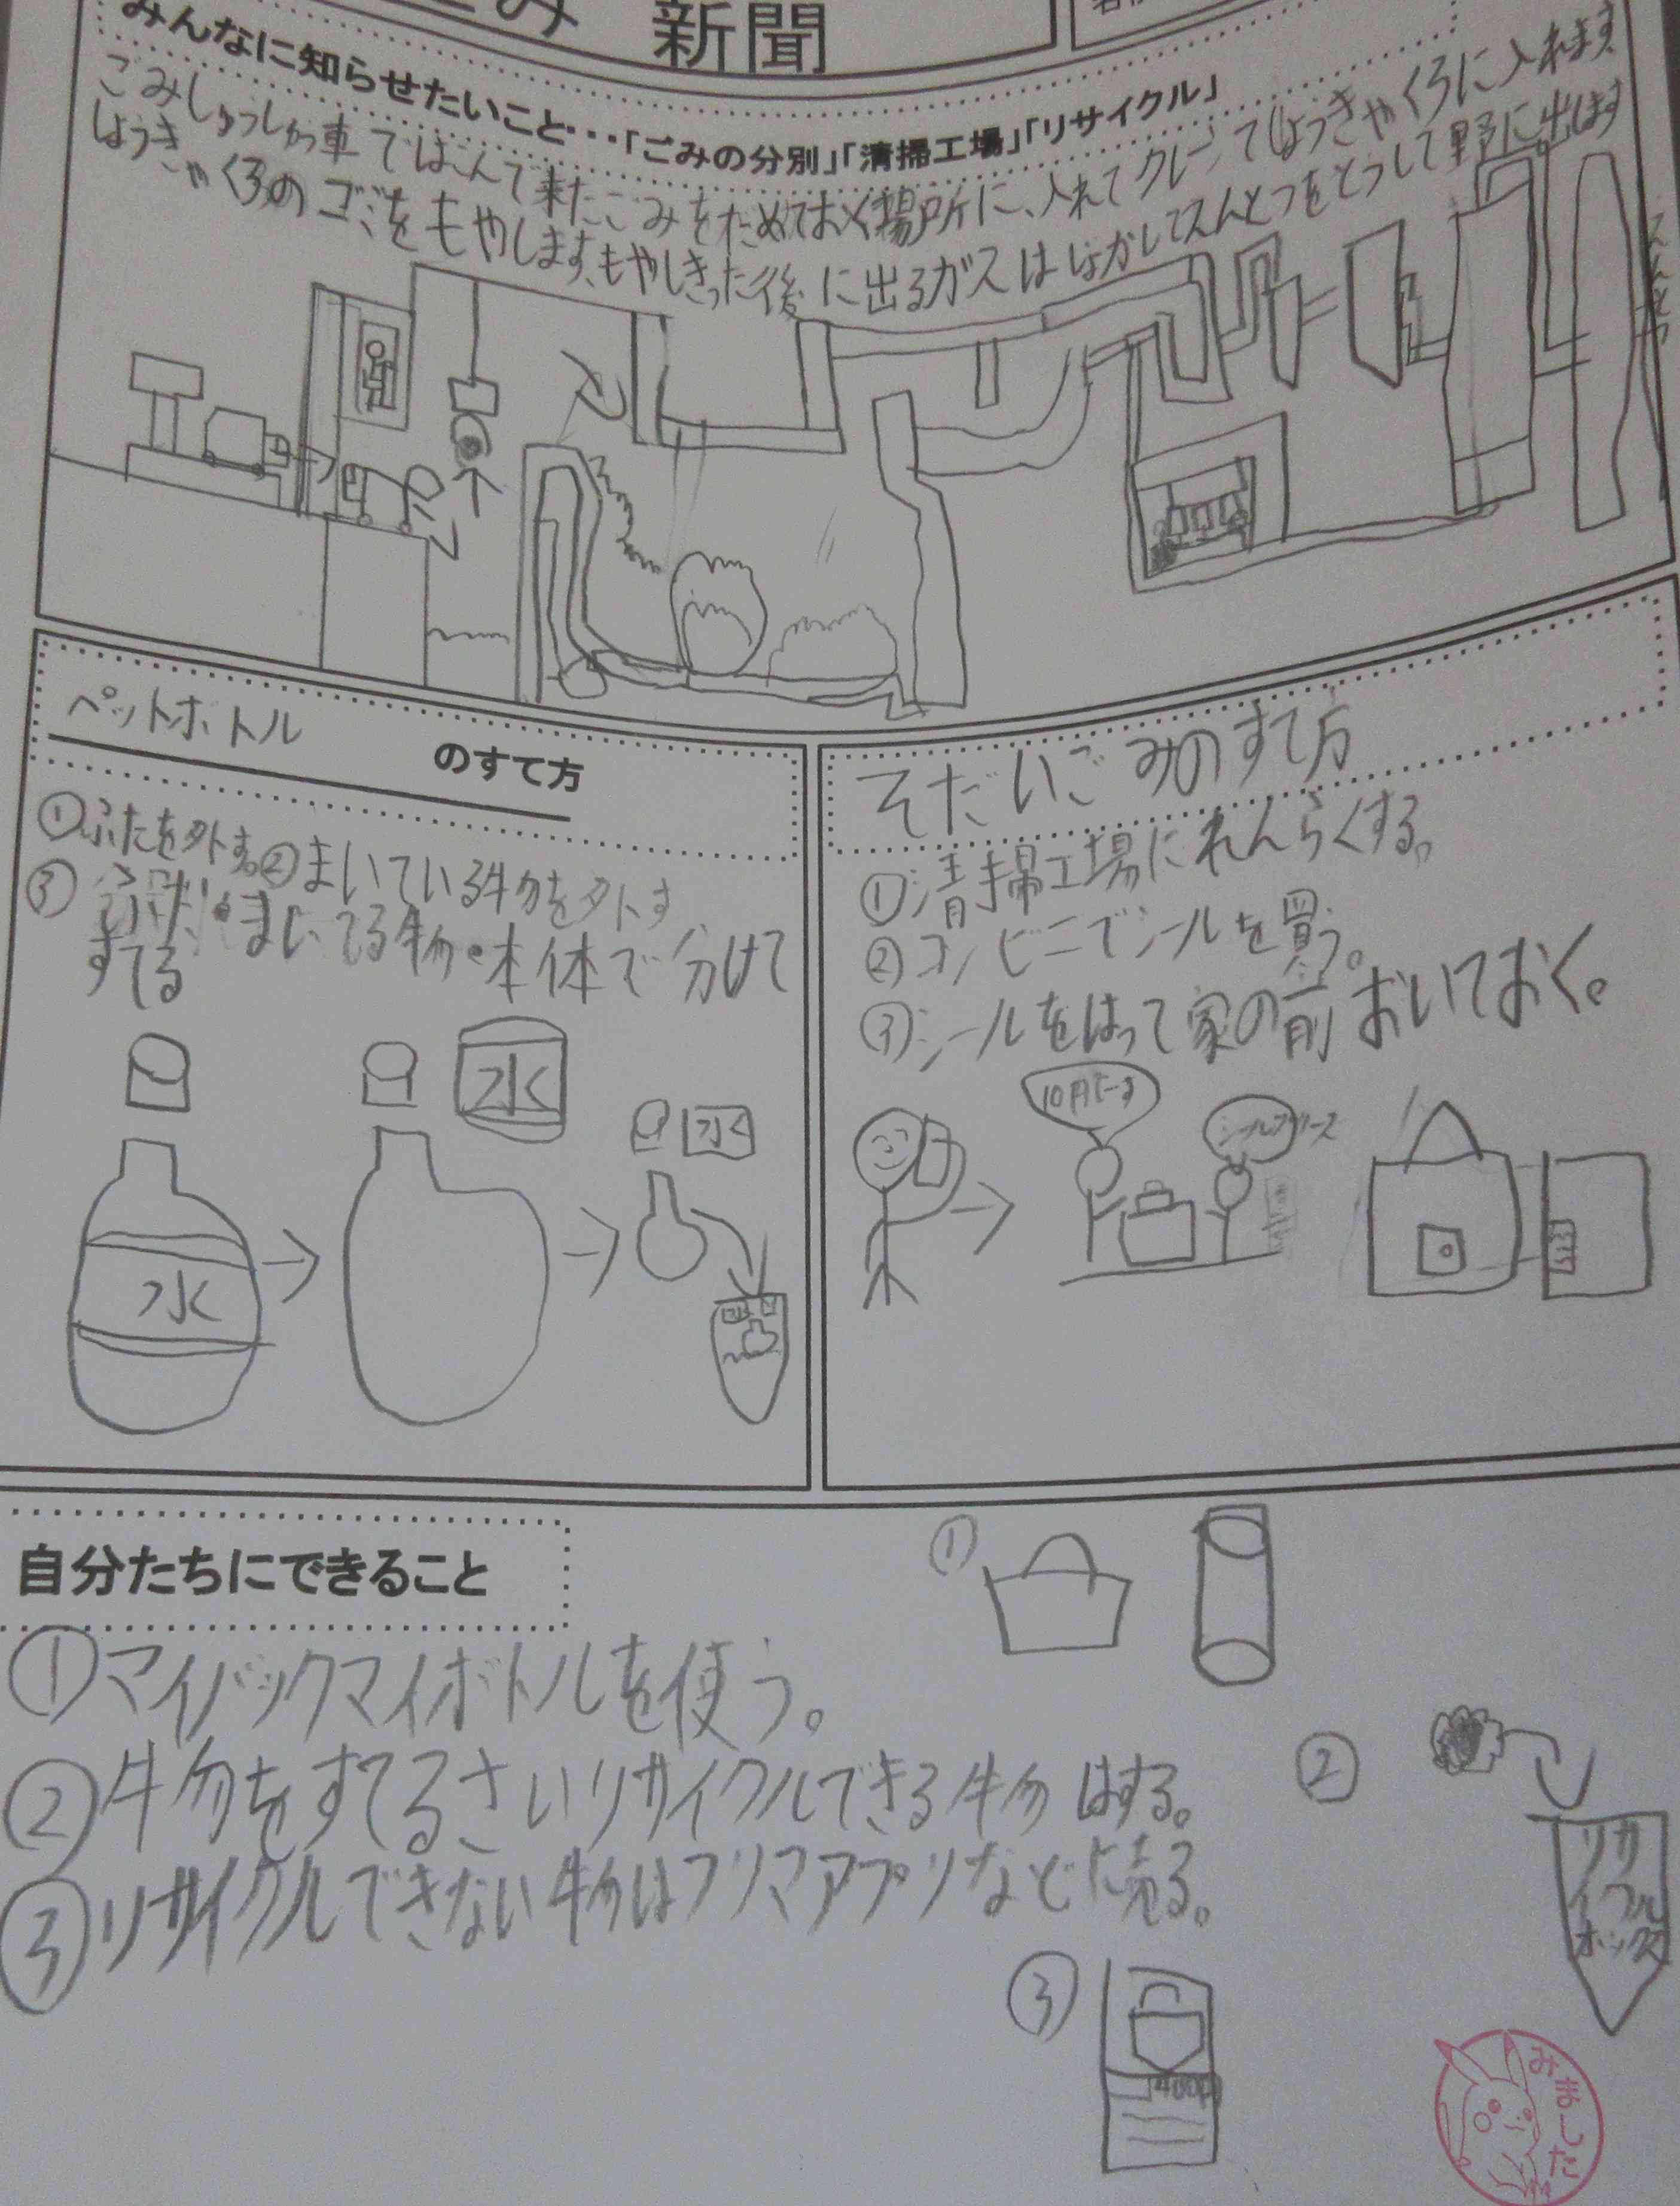 ごみ 新聞
みんなに知らせたいこと・・・「ごみの分別」「清掃工場」「リサイクル」
ごみしゅっしゅつ車ではこんで来たごみをためておく場所に、入れてクレーンてしょうきゃくろに入れます
しょうきゃくろのゴミをもやします、もやしきった後に出るガスはながしてえんとつをとうして野に出します
えんとつ
ペットボトル のすて方
①ふたを外す。②まいている物を外す
③ふた・まいてる物・本体で分けて
すてる
水
水
水
水
そだいごみのすて方
①清掃工場にれんらくする。
②コンビニでシールを買う。
③シールをはって家の前おいておく。
10円でーす
自分たちにできること
①マイバックマイボトルを使う。
②物をすてるさいリサイクルできる物はする。
③リサイクルできない物はフリマアプリなどに売る。
①
②
リサ
イクル
ボックス
③
みました